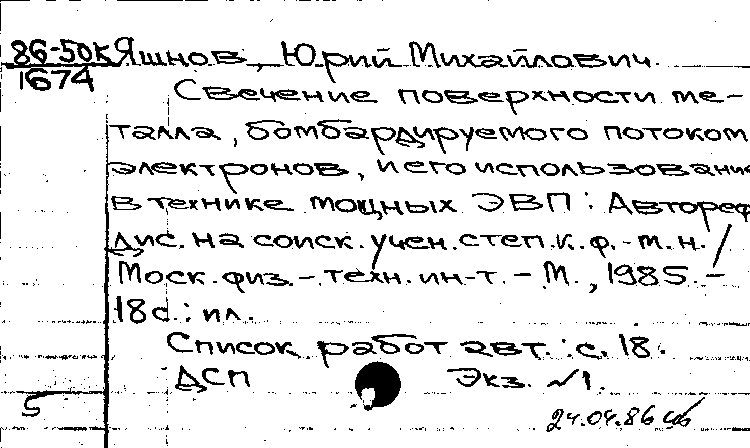 86-50к Яшнов, Юрий Михайлович.
1674
Свечение поверхности ме-
талла, бомбардируемого потоком
электронов, и его использование
в технике мощных ЭВП : Автореф
дис. на соиск. учен. степ. к. ф.-м. н. /
Моск. физ.-техн. ин-т. - М., 1985. -
18с. : ил.
Список работ авт. : с. 18.
ДСП Экз. №1.
5
24.04.86